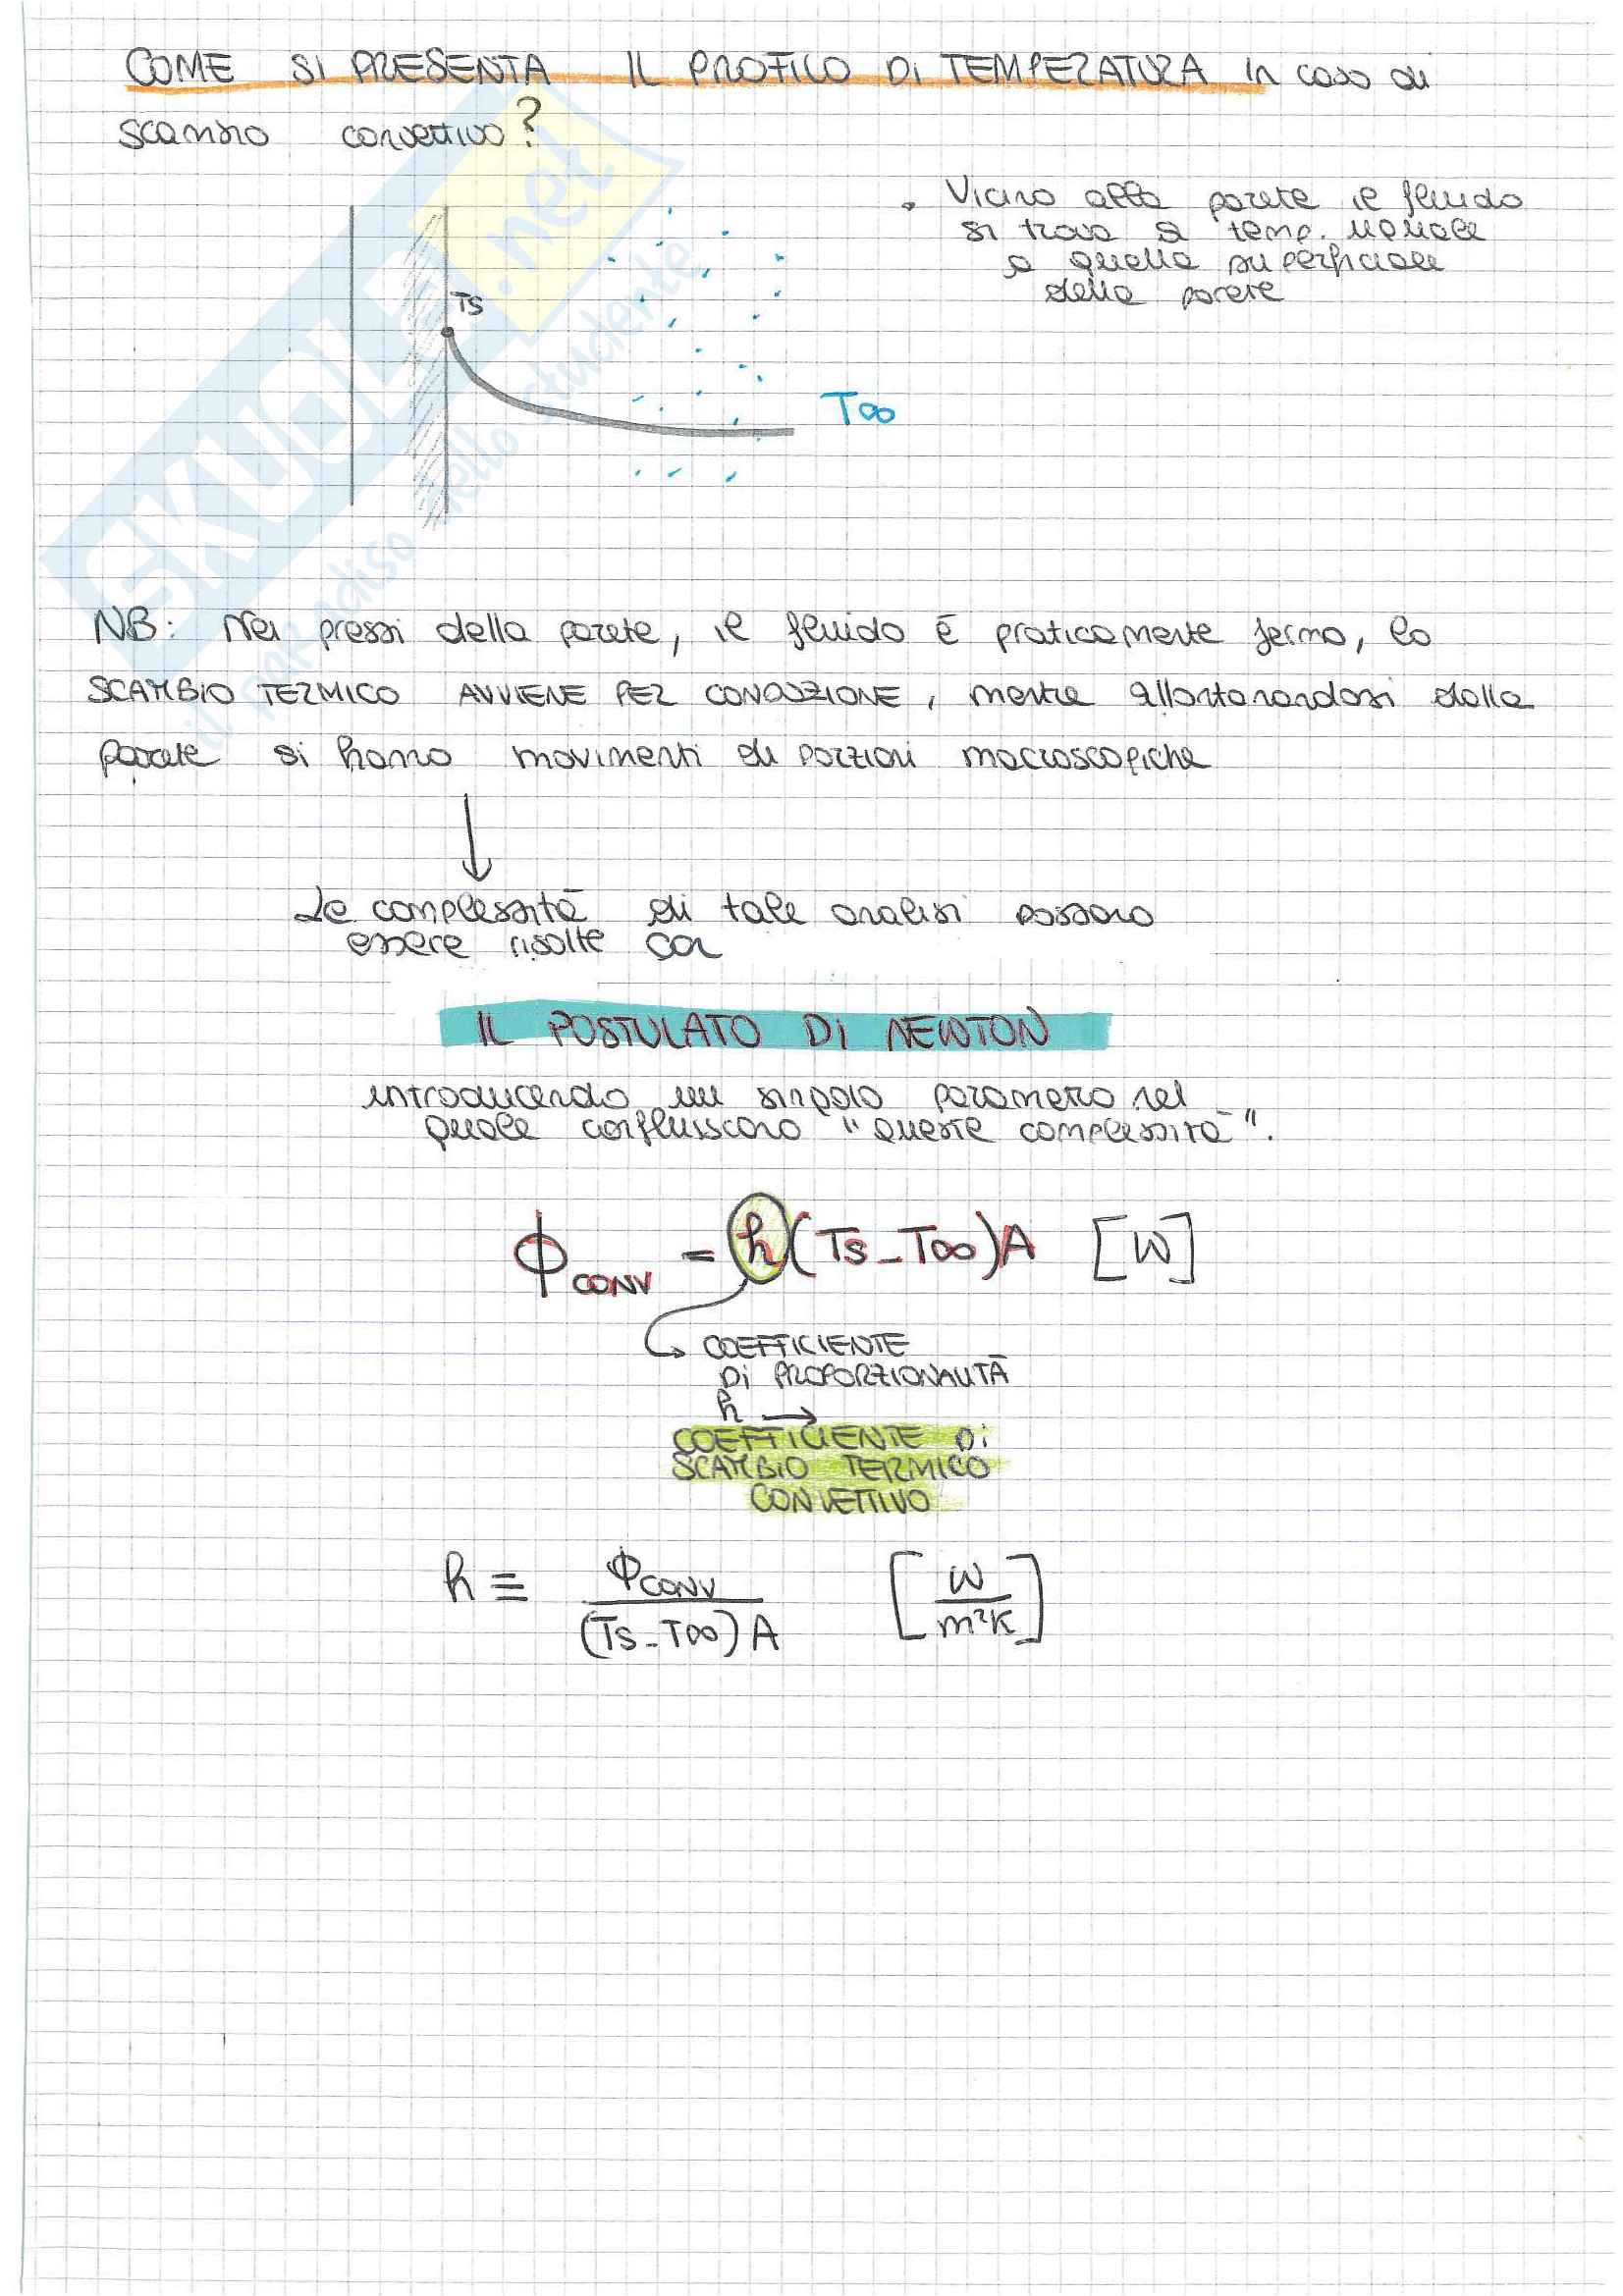 COME SI PRESENTA IL PROFILO DI TEMPERATURA in caso di
scambio convettivo?
• Vicino alla parete il fluido
si trova a temp. uguale
a quella superficiale
della parete
TS
T∞
NB: Nei pressi della parete, il fluido è praticamente fermo, lo
SCAMBIO TERMICO AVVIENE PER CONDUZIONE, mentre allontanandosi dalla
parete si hanno movimenti di porzioni macroscopiche
↓
Le complessità di tale analisi possono
essere risolte con
IL POSTULATO DI NEWTON
introducendo un singolo parametro nel
quale confluiscono "queste complessità".
ϕCONV = h(TS-T∞)A [W]
COEFFICIENTE
DI PROPORZIONALITÀ
h →
COEFFICIENTE DI
SCAMBIO TERMICO
CONVETTIVO
h ≡ ϕCONV / (TS-T∞)A [W / m²K]
SKUOLA.net
il paradiso dello studente